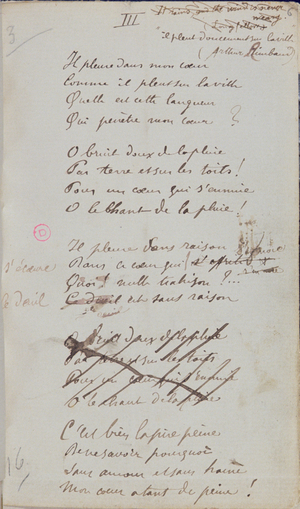 III
It rains, and the wind is never
weary
Longfellow
il pleut doucement sur la ville
(Arthur Rimbaud)
3
Il pleure dans mon cœur
Comme il pleut sur la ville
Quelle est cette langueur
Qui pénètre mon cœur ?
O bruit doux de la pluie
Par terre et sur les toits !
Pour un cœur qui s'ennuie
O le chant de la pluie !
Il pleure sans raison
Dans ce cœur qui
s'écœure
Quoi ! nulle trahison ?...
Ce deuil est sans raison
s'écœure
Le deuil
O bruit doux de la pluie
Par terre et sur les toits
Pour un cœur qui s'ennuie
O le chant de la pluie
C'est bien la pire peine
De ne savoir pourquoi
Sans amour et sans haine
Mon cœur a tant de peine !
16